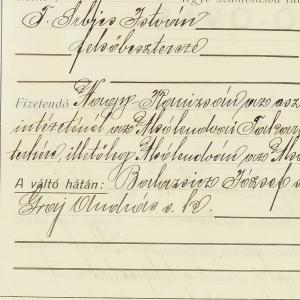 T. Srbjes István
felsőbesztercze
Fizetendő Nagy-Kanizsán az
intézeténél az Alsólendvai Takar
terhére, illetőleg Alsólendván az Alsó
A váltó hátán: Barbazsicz József s
Graj András s. k.